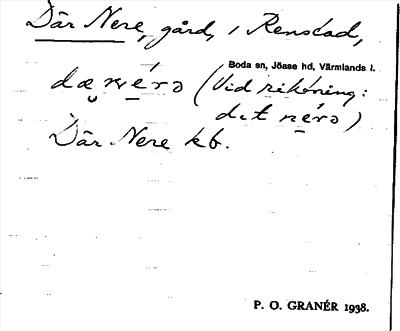 Där Nere, gård, i Renstad,
Boda sn, Jösse hd, Värmlands l.
(Vid riktning:
dit nérə)
Där Nere kb.
P. O. GRANÉR 1938.